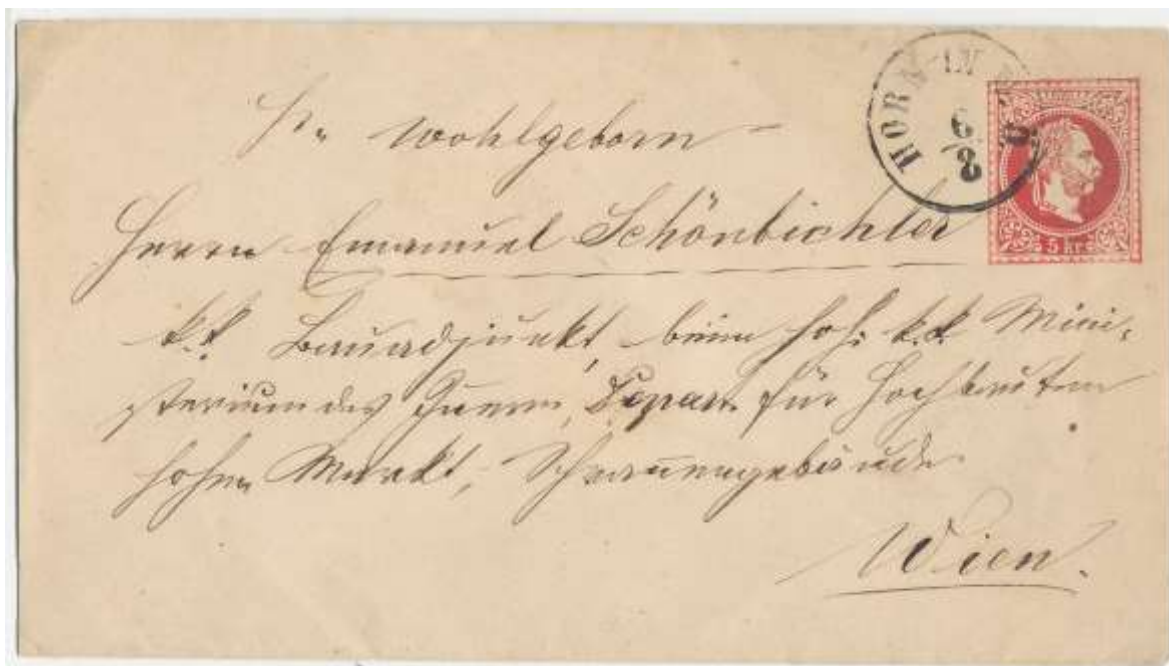 HORN IN
6/8
5 kr
Sr. Wohlgeborn
Herrn Emanuel Schönbichler
k.k. Bauadjunkt beim hoh: k.k. Mini-
sterium des Innern, Depart. für Hochbauten
hoher Markt, Schrannengebäude
Wien.